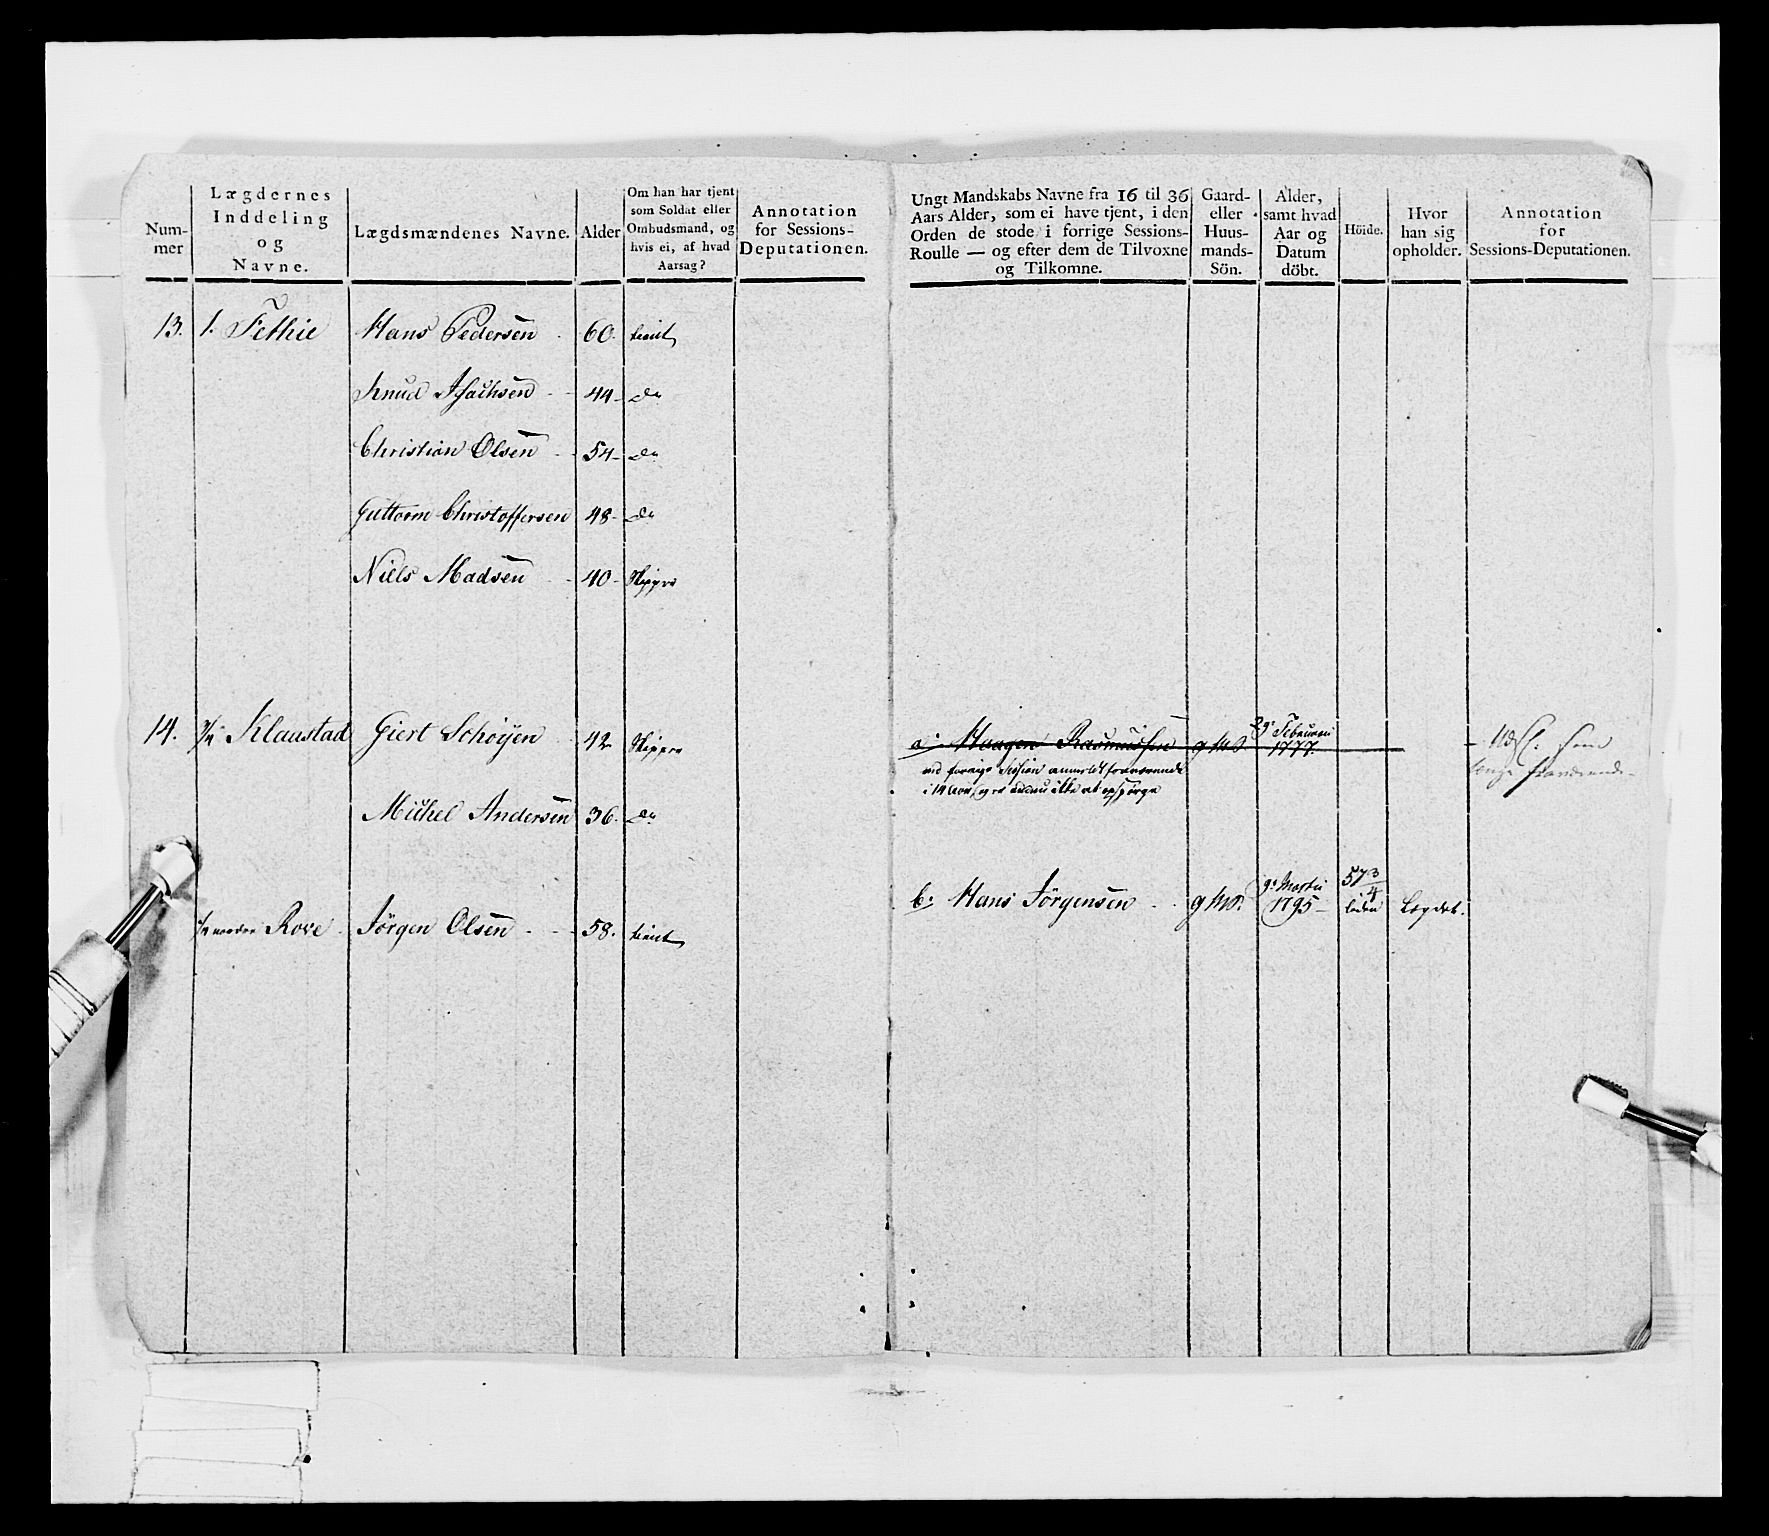 Num-
mer
Lægdernes
Inddeling
og
Navne.
Lægdsmændenes Navne.
Alder
Om han har tjent
som Soldat eller
Ombudsmand, og
hvis ei, af hvad
Aarsag?
Annotation
for Sessions-
Deputationen.
Ungt Mandskabs Navne fra 16 til 36
Aars Alder, som ei have tjent, i den
Orden de stode i forrige Sessions-
Roulle — og efter dem de Tilvoxne
og Tilkomne.
Gaard-
eller
Huus-
mands-
Sön.
Alder,
samt hvad
Aar og
Datum
döbt.
Höide.
Hvor
han sig
opholder.
Annotation
for
Sessions-Deputationen.
13. 1. Fethie Hans Pedersen 60. tient
Knud Isachsen 44 do
Christian Olsen 54 do
Guttorm Christoffersen 48 do
Niels Madsen 40 Skippr
14. Klaastad Giert Schöyen 42 Skippr
Michel Andersen 36. do
nordre Rove Jörgen Olsen 58. tient
a. Haagen Rasmussen g M S. 23 Februari
1777.
ved forrige Session anmeldt fraværende
i 14 Aar, endnu ikke at opspörge
Udsl. som
længe fraværende
b. Hans Jörgensen g M S. 9 Martii
1795 57 3/4
liden Legdet.